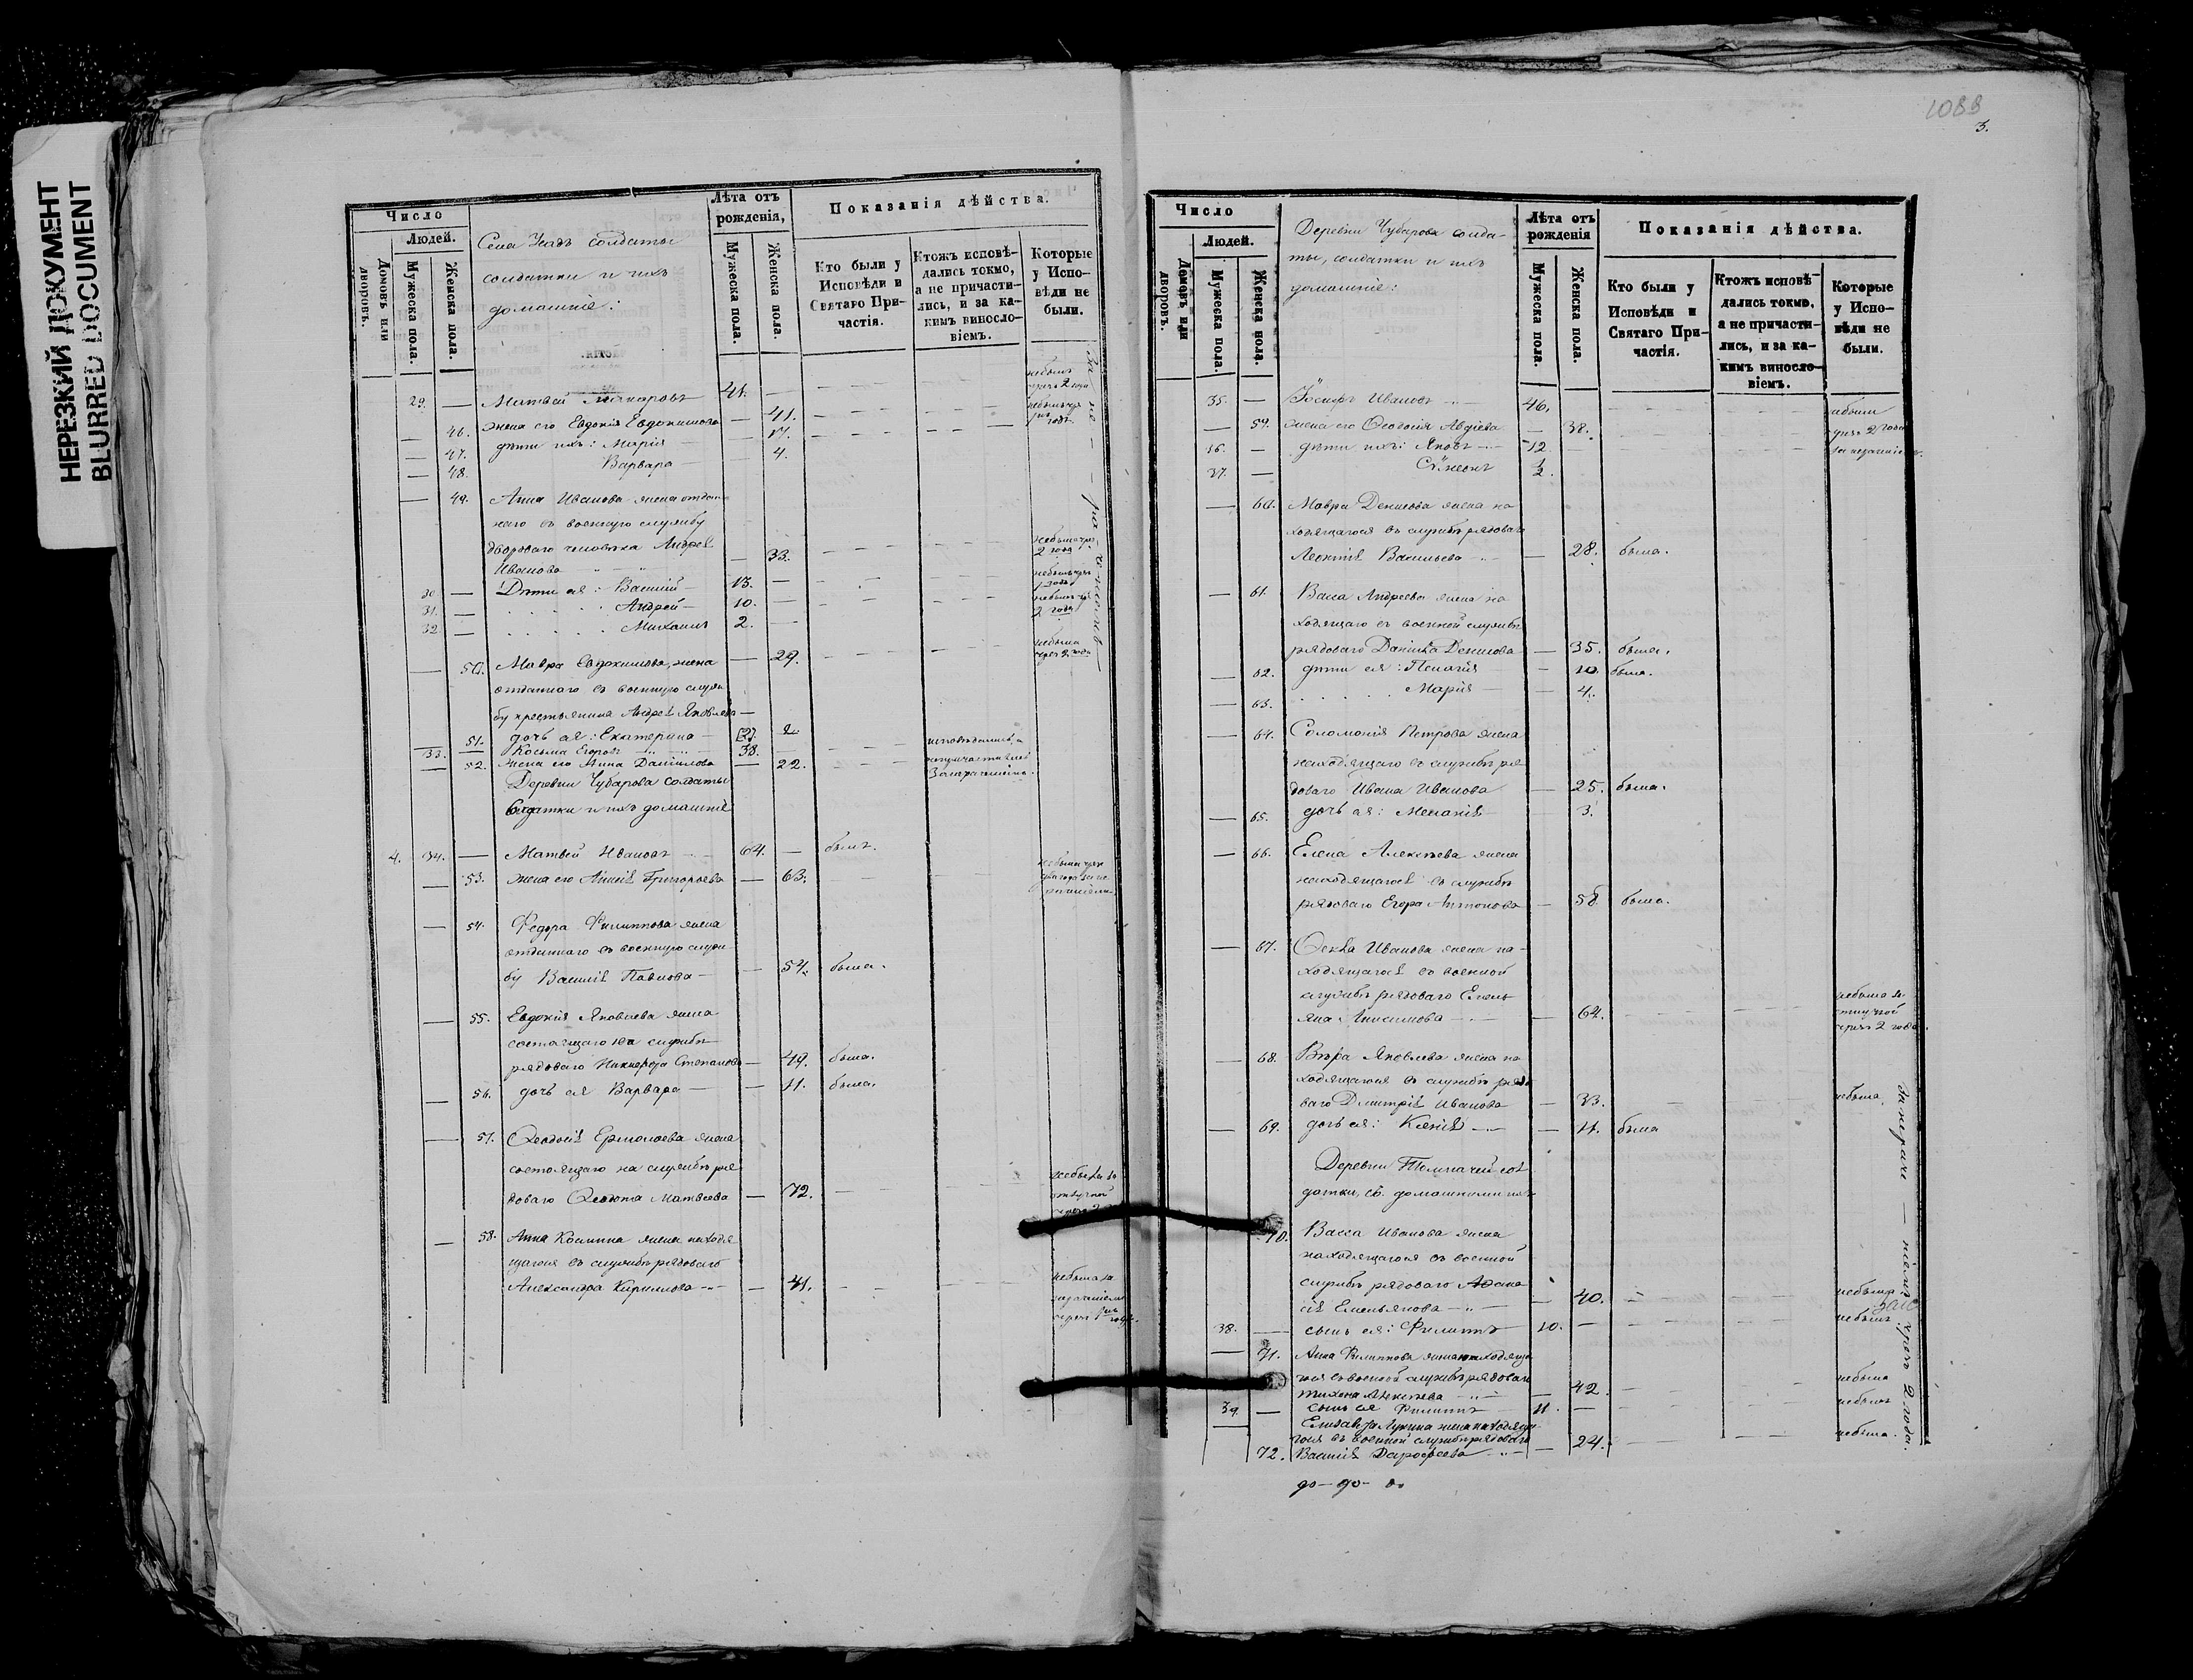 НЕРЕЗКИЙ ДОКУМЕНТ
BLURRED DOCUMENT
Число
Людей.
Домовъ или дворовъ.
Мужеска пола.
Женска пола.
Села солдаты
солдатки и ихъ
домашніе:
Лѣта отъ рожденія,
Мужеска пола.
Женска пола.
Показанія дѣйства.
Кто были у Исповѣди и Святаго Причастія.
Ктожъ исповѣдались токмо, а не причастились, и за какимъ винословіемъ.
Которые у Исповѣди не были.
29. — Матвей Макаровъ 41. —
46. жена его Евдокія Евдокимова — 41.
— 47. дѣти ихъ: Марія — 17.
— 48. Варвара — 4.
— 49. Анна Иванова жена отдан-
наго въ военную службу
двороваго человѣка Андрея
Иванова — 33.
30 — Дѣти ея: Василій — 13. —
31. — Андрей — 10. —
32 — Михаилъ 2. —
— 50. Мавра Евдокимова, жена — 29.
отданнаго въ военную служ
бу крестьянина Андрея Яковлева —
51. дочь ея: Екатерина
33. Косьма Егоровъ 38.
— 52. Жена его Анна Данилова — 22.
Деревни Чубарова солдаты
солдатки и ихъ домашніе
4. 34. — Матвей Ивановъ 64. — былъ.
— 53. жена его Григорьева — 63.
— 54. Филиппова жена
отданнаго въ военную служ
бу Василія Павлова — — 54. была.
— 55. Евдокія Яковлева жена
состоящаго на службѣ
рядоваго Никифора Степанова — 49. была.
— 56. дочь ея Варвара — — 11. была.
— 57. Ѳеодосія Ермолаева жена
состоящаго на службѣ ря
доваго Матвеева — 72.
— 58. Анна Косьмина жена находя
щагося въ службѣ рядоваго
Александра Кирилова — 41.
1088
3.
Число
Людей.
Домовъ или дворовъ.
Мужеска пола.
Женска пола.
Деревни Чубарова солда-
ты, солдатки и ихъ
домашніе:
Лѣта отъ рожденія
Мужеска пола.
Женска пола.
Показанія дѣйства.
Кто были у Исповѣди и Святаго Причастія.
Ктожъ исповѣдались токмо, а не причастились, и за какимъ винословіемъ.
Которые у Исповѣди не были.
35. — Іосифъ Ивановъ 46.
— 59. жена его Ѳеодосія Авдіева — 38.
36. — дѣти ихъ: Яковъ 12
37. — Сѷмеонъ
— 60. Мавра Денисова жена на
ходящагося въ службѣ рядоваго
Леонтія Васильева — 28. была.
— 61. Васса Андреева жена на
ходящаго въ военной службѣ
рядоваго Даніила Денисова — 35. была.
— 62. дѣти ея: Пелагія — 10. была.
— 63. Марія — 4.
— 64. Соломонія Петрова жена
находящаго въ службѣ ря
доваго Ивана Иванова — 25. была.
— 65. дочь ея: Меланія — 3.
— 66. Елена Алексѣева жена
находящагося въ службѣ
рядоваго Егора Антонова — 58. была.
— 67. Ѳекла Иванова жена на-
ходящагося въ военной
службѣ рядоваго Емель
яна Анисимова — 64.
— 68. Вѣра Яковлева жена на
ходящагося въ службѣ рядо
ваго Димитрія Иванова — 33. небыла
— 69. дочь ея: Ксенія — 11. была
Деревни сол
датки, съ домашними ихъ
70. Васса Иванова жена
находящагося въ военной
службѣ рядоваго Аѳана
сія Емельянова — 40. небыла
38. — сынъ ея: Филиппъ 10. — небылъ
— 71. Анна Филиппова жена находяща
гося въ военной службѣ рядоваго
Тихона Алексѣева — 42. небыла
39. — сынъ ея Филиппъ 11. — небылъ
— Елисавета жена находяща
гося въ военной службѣ рядоваго
72. Василія Дорофеева — 24. небыла.